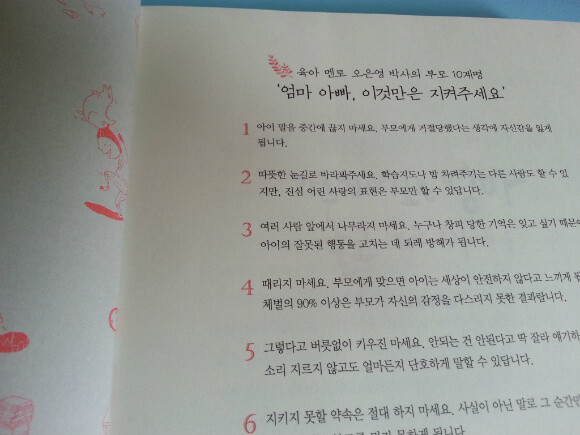 육아 멘토 오은영 박사의 부모 10계명
'엄마 아빠, 이것만은 지켜주세요'
1 아이 말을 중간에 끊지 마세요. 부모에게 거절당했다는 생각에 자신감을 잃게
됩니다.
2 따뜻한 눈길로 바라봐주세요. 학습지도나 밥 차려주기는 다른 사람도 할 수 있
지만, 진심 어린 사랑의 표현은 부모만 할 수 있답니다.
3 여러 사람 앞에서 나무라지 마세요. 누구나 창피 당한 기억은 잊고 싶기 때문에
아이의 잘못된 행동을 고치는 데 되레 방해가 됩니다.
4 때리지 마세요. 부모에게 맞으면 아이는 세상이 안전하지 않다고 느끼게
체벌의 90% 이상은 부모가 자신의 감정을 다스리지 못한 결과랍니다.
5 그렇다고 버릇없이 키우진 마세요. 안되는 건 안된다고 딱 잘라 얘기하
소리 지르지 않고도 얼마든지 단호하게 말할 수 있답니다.
6 지키지 못할 약속은 절대 하지 마세요. 사실이 아닌 말로 그 순간만
못하게 됩니다.